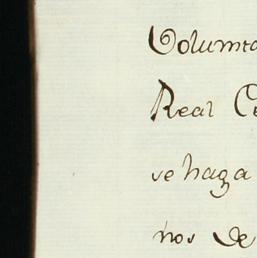 Volunta
Real C
se haga
nos de